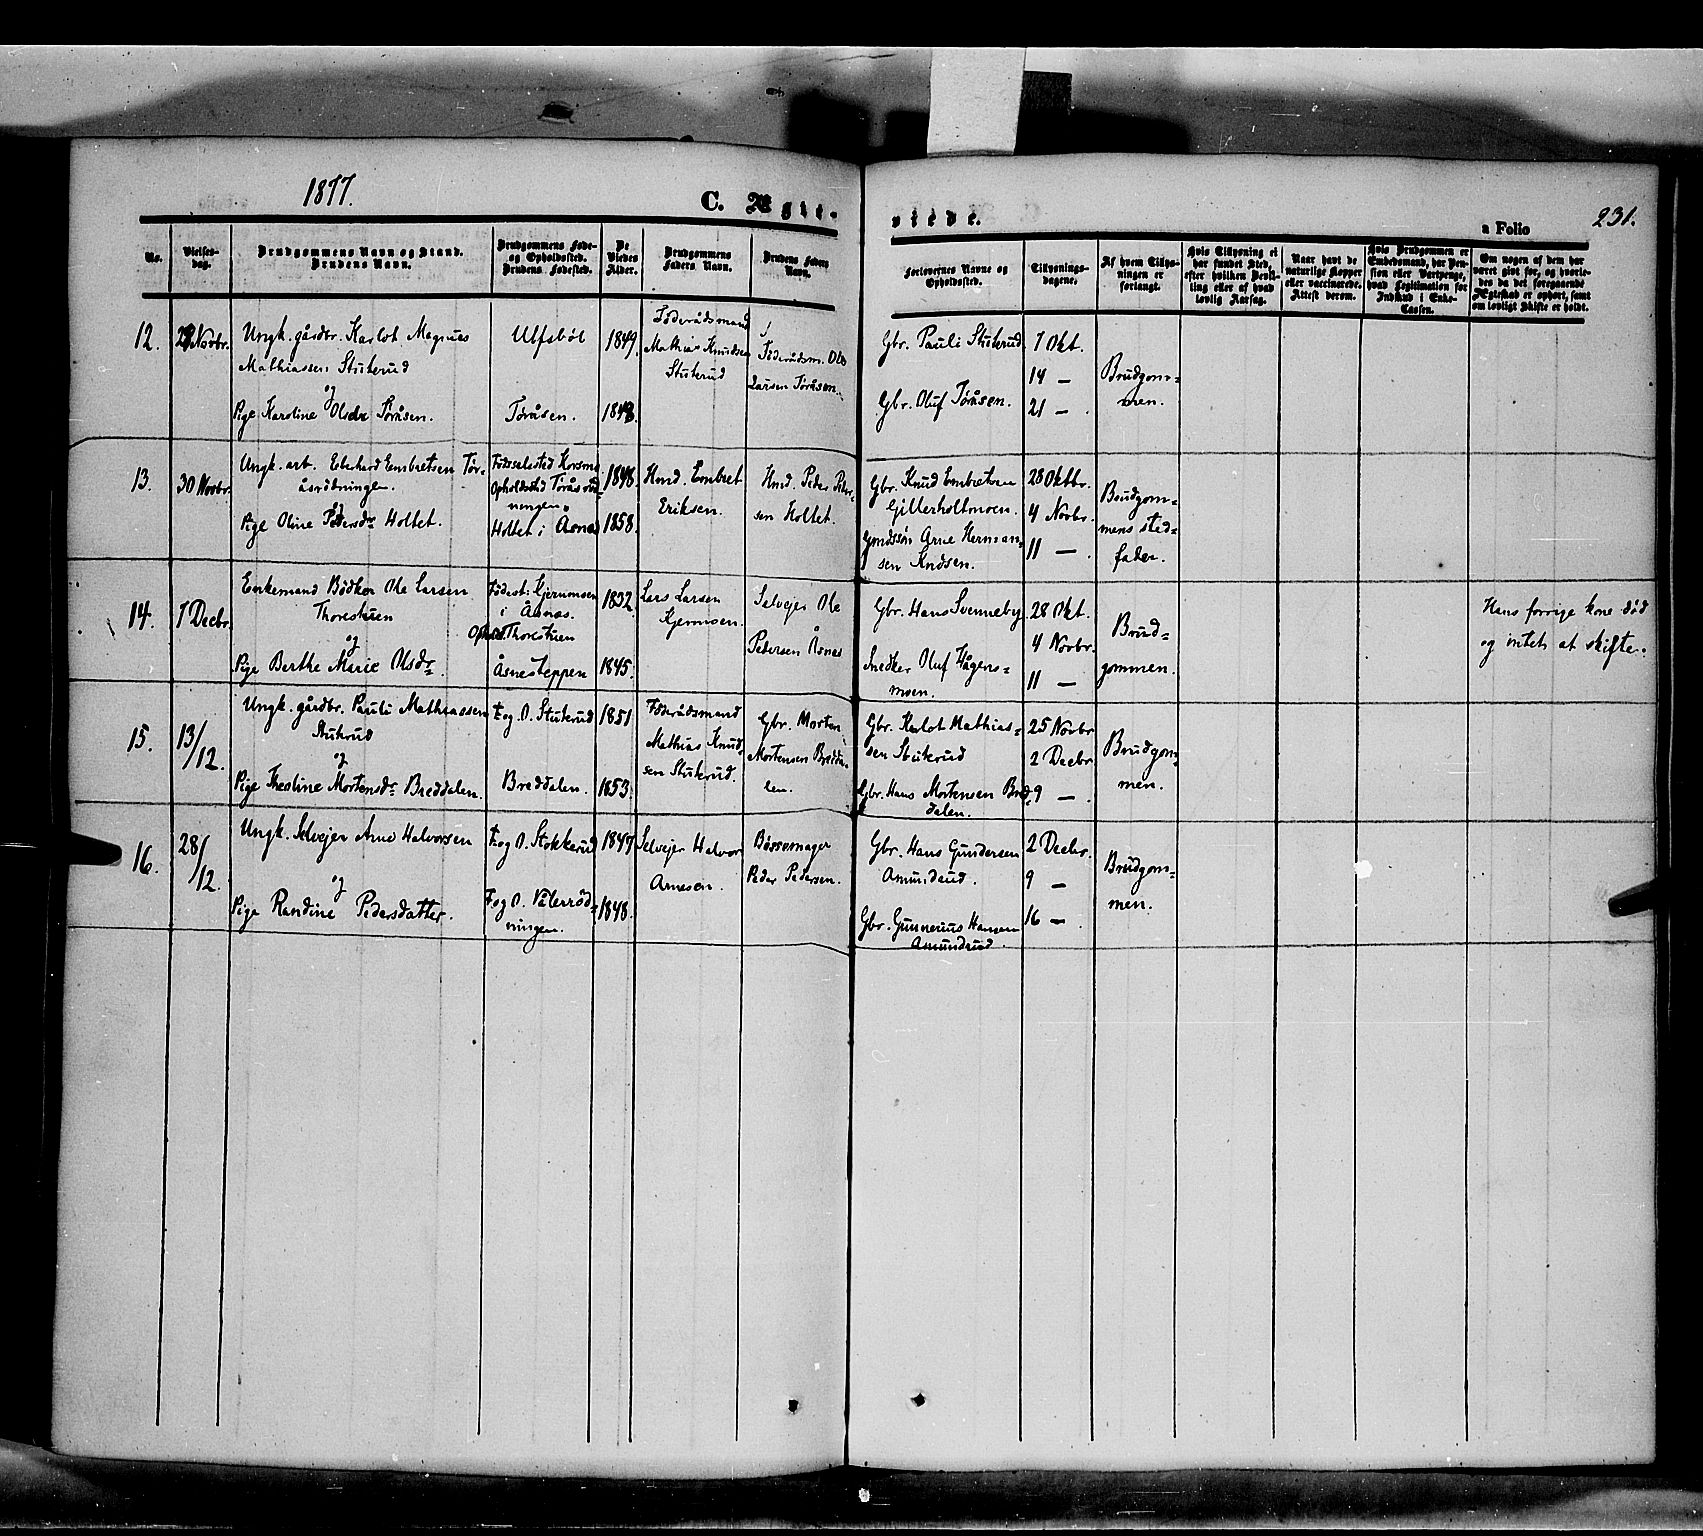 1877.
C. Ægte-
viede.
a Folio
231.
No.
Vielses-
dag.
Brudgommens Navn og Stand.
Brudens Navn.
Brudgommens Føde-
og Opholdssted.
Brudens Fødested.
De
Viedes
Alder.
Brudgommens
Faders Navn.
Brudens Faders
Navn.
Forlovernes Navne og
Opholdssted.
Tillysnings-
dagene.
Af hvem Tillys-
ningen er
forlangt.
Hvis Tillysning ei
har fundet Sted,
efter hvilken Bevil-
ling eller af hvad
lovlig Aarsag.
Naar havt de
naturlige Kopper
eller vaccinerede.
Attest derom.
Hvis Brudgommen er
Embedsmand, har Pen-
sion eller Vartpenge,
hvad Legitimation for
Indskud i Enke-
Cassen.
Om nogen af dem har
været givt før, og hvorle-
des da det foregaaende
Ægteskab er ophørt, samt
om lovligt Skifte er holdt.
12.
Novbr.
Ungk. gårdbr. Karlot Magnus
Mathiassen Stukerud
og
Pige Karoline Olsdr Töråsen.
Ulfsböl
Töråsen.
1849
184
Föderådsmand
Mathias Knudsen
Stukerud
Föderådsm. Ole
Larsen Töråsen.
Gbr. Pauli Stukerud
Gbr. Oluf Töråsen.
7 Okt.
14 —
21 —
Brudgom=
men.
13.
30 Novbr.
Ungk. arb. Eberhard Embretsen Tör-
åsrödningen.
og
Pige Oline Pedersdr Holtet.
Födselssted Korsmo
Opholdsted Töråsröd=
ningen.
Holtet i Åsnes
1848.
1858.
Hmd. Embret
Eriksen.
Hmd. Peder Peder-
sen Holtet.
Gbr. Knud Embretsen
Gillerholtmoen.
Gmdssøn Arne Herman=
sen Kndsen.
28 Oktbr.
4 Novbr.
11 —
Brudgom=
mens sted=
fader.
14.
1 Decbr.
Enkemand Bödker Ole Larsen
Thorestuen
og
Pige Berthe Marie Olsdr.
Födest: Kjernmoen
i Åsnes.
Opholdst. Thorestuen
Åsnesteppen
1832
1845.
Lars Larsen
Kjernmoen.
Selvejer Ole
Pedersen Åsnes
Gbr. Hans Svenneby
Snedker Oluf Hågens=
moen.
28 Okt.
4 Novbr.
11 —
Brud=
gommen.
Hans forrige kone död
og intet at skifte.
15.
13/12.
Ungk. gårdbr. Pauli Mathiassen
Stukrud
og
Pige Thestine Mortensdr Breddalen.
F. og O. Stukerud
Breddalen.
1851
1853
Föderådsmand
Mathias Knud=
sen Stukerud.
Gbr. Morten
Mortensen Bredda=
len.
Gbr. Karlot Mathias=
sen Stukerud
Gbr. Hans Mortensen Bred=
dalen.
25 Novbr
2 Decbr
9 —
Brudgom=
men.
16.
28/12.
Ungk. Selvejer Arne Halvorsen
og
Pige Randine Pedersdatter.
F. og O. Stokkerud
F. og O. Vålerröd=
ningen.
1847
1848.
Selvejer Halvor
Arnesen.
Bössemager
Peder Pedersen.
Gbr. Hans Gundersen
Amundsrud.
Gbr. Gunnerius Hansen
Amundrud.
2 Decbr.
9 —
16 —
Brudgom=
men.